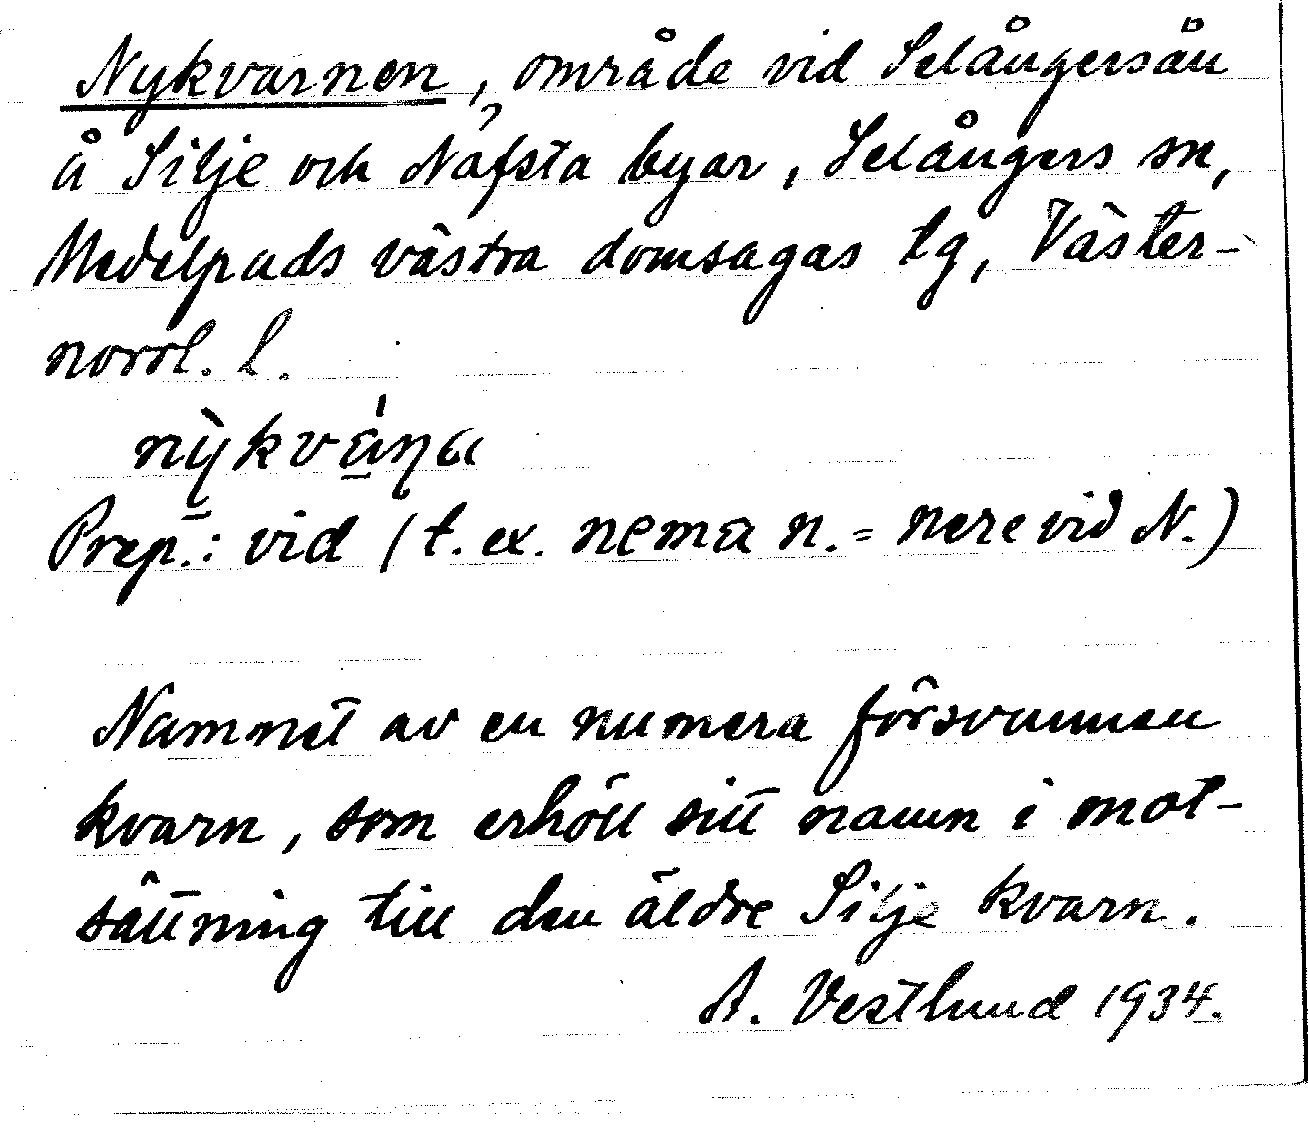 Nykvarnen, område vid Selångersån
å Silje och Nafsta byar, Selångers sn,
Medelpads västra domsagas tg, Väster-
norrl. l.
nỳkváṇa
Prep.: vid (t. ex. nema n. = nere vid N.)
Namnet av en numera försvunnen
kvarn, som erhöll sitt namn i mot-
sättning till den äldre Silje kvarn.
A. Vestlund 1934.